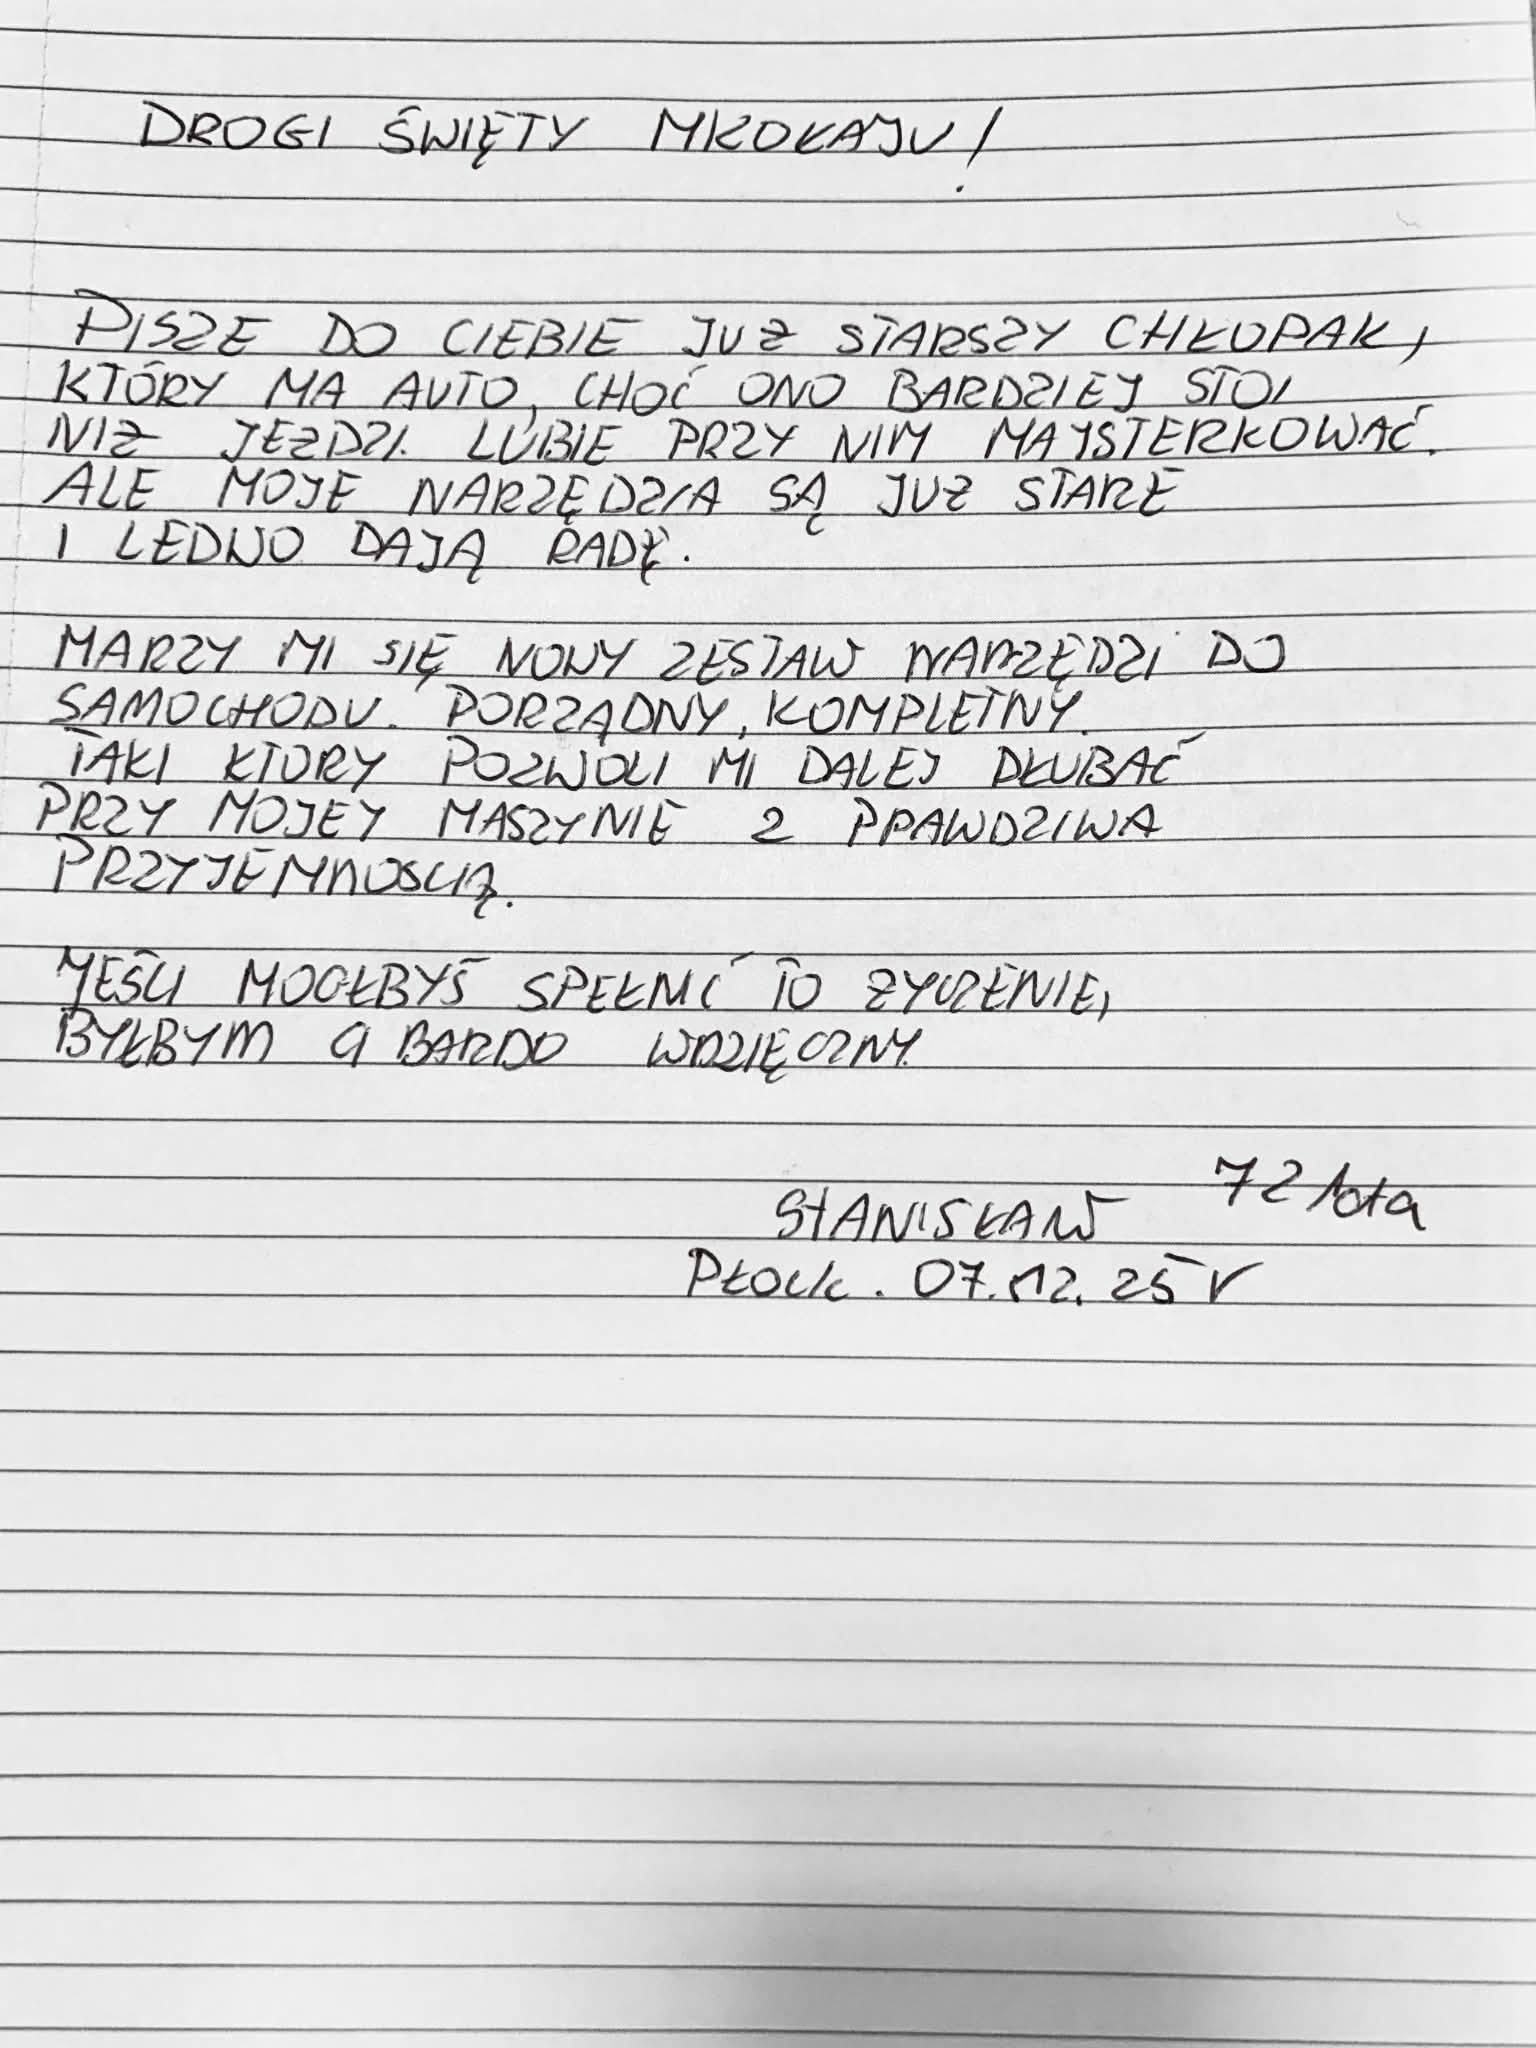 DROGI ŚWIĘTY MIKOŁAJU!
PISZE DO CIEBIE JUŻ STARSZY CHŁOPAK,
KTÓRY MA AUTO, CHOĆ ONO BARDZIEJ STOI
NIŻ JEŻDZI. LUBIE PRZY NIM MAJSTERKOWAĆ.
ALE MOJE NARZĘDZIA SĄ JUŻ STARE
I LEDWO DAJĄ RADĘ.
MARZY MI SIĘ NOWY ZESTAW NARZĘDZI DO
SAMOCHODU. PORZĄDNY, KOMPLETNY.
TAKI KTORY POZWOLI MI DALEJ DŁUBAĆ
PRZY MOJEY MASZYNIE Z PRAWDZIWA
PRZYJEMNOSCIĄ.
JEŚLI MOGŁBYŚ SPEŁNIĆ TO ŻYCZENIE,
BYŁBYM CI BARDO WDZIĘCZNY.
STANISŁAW 72 lata
PŁOCK. 07.12.25 r